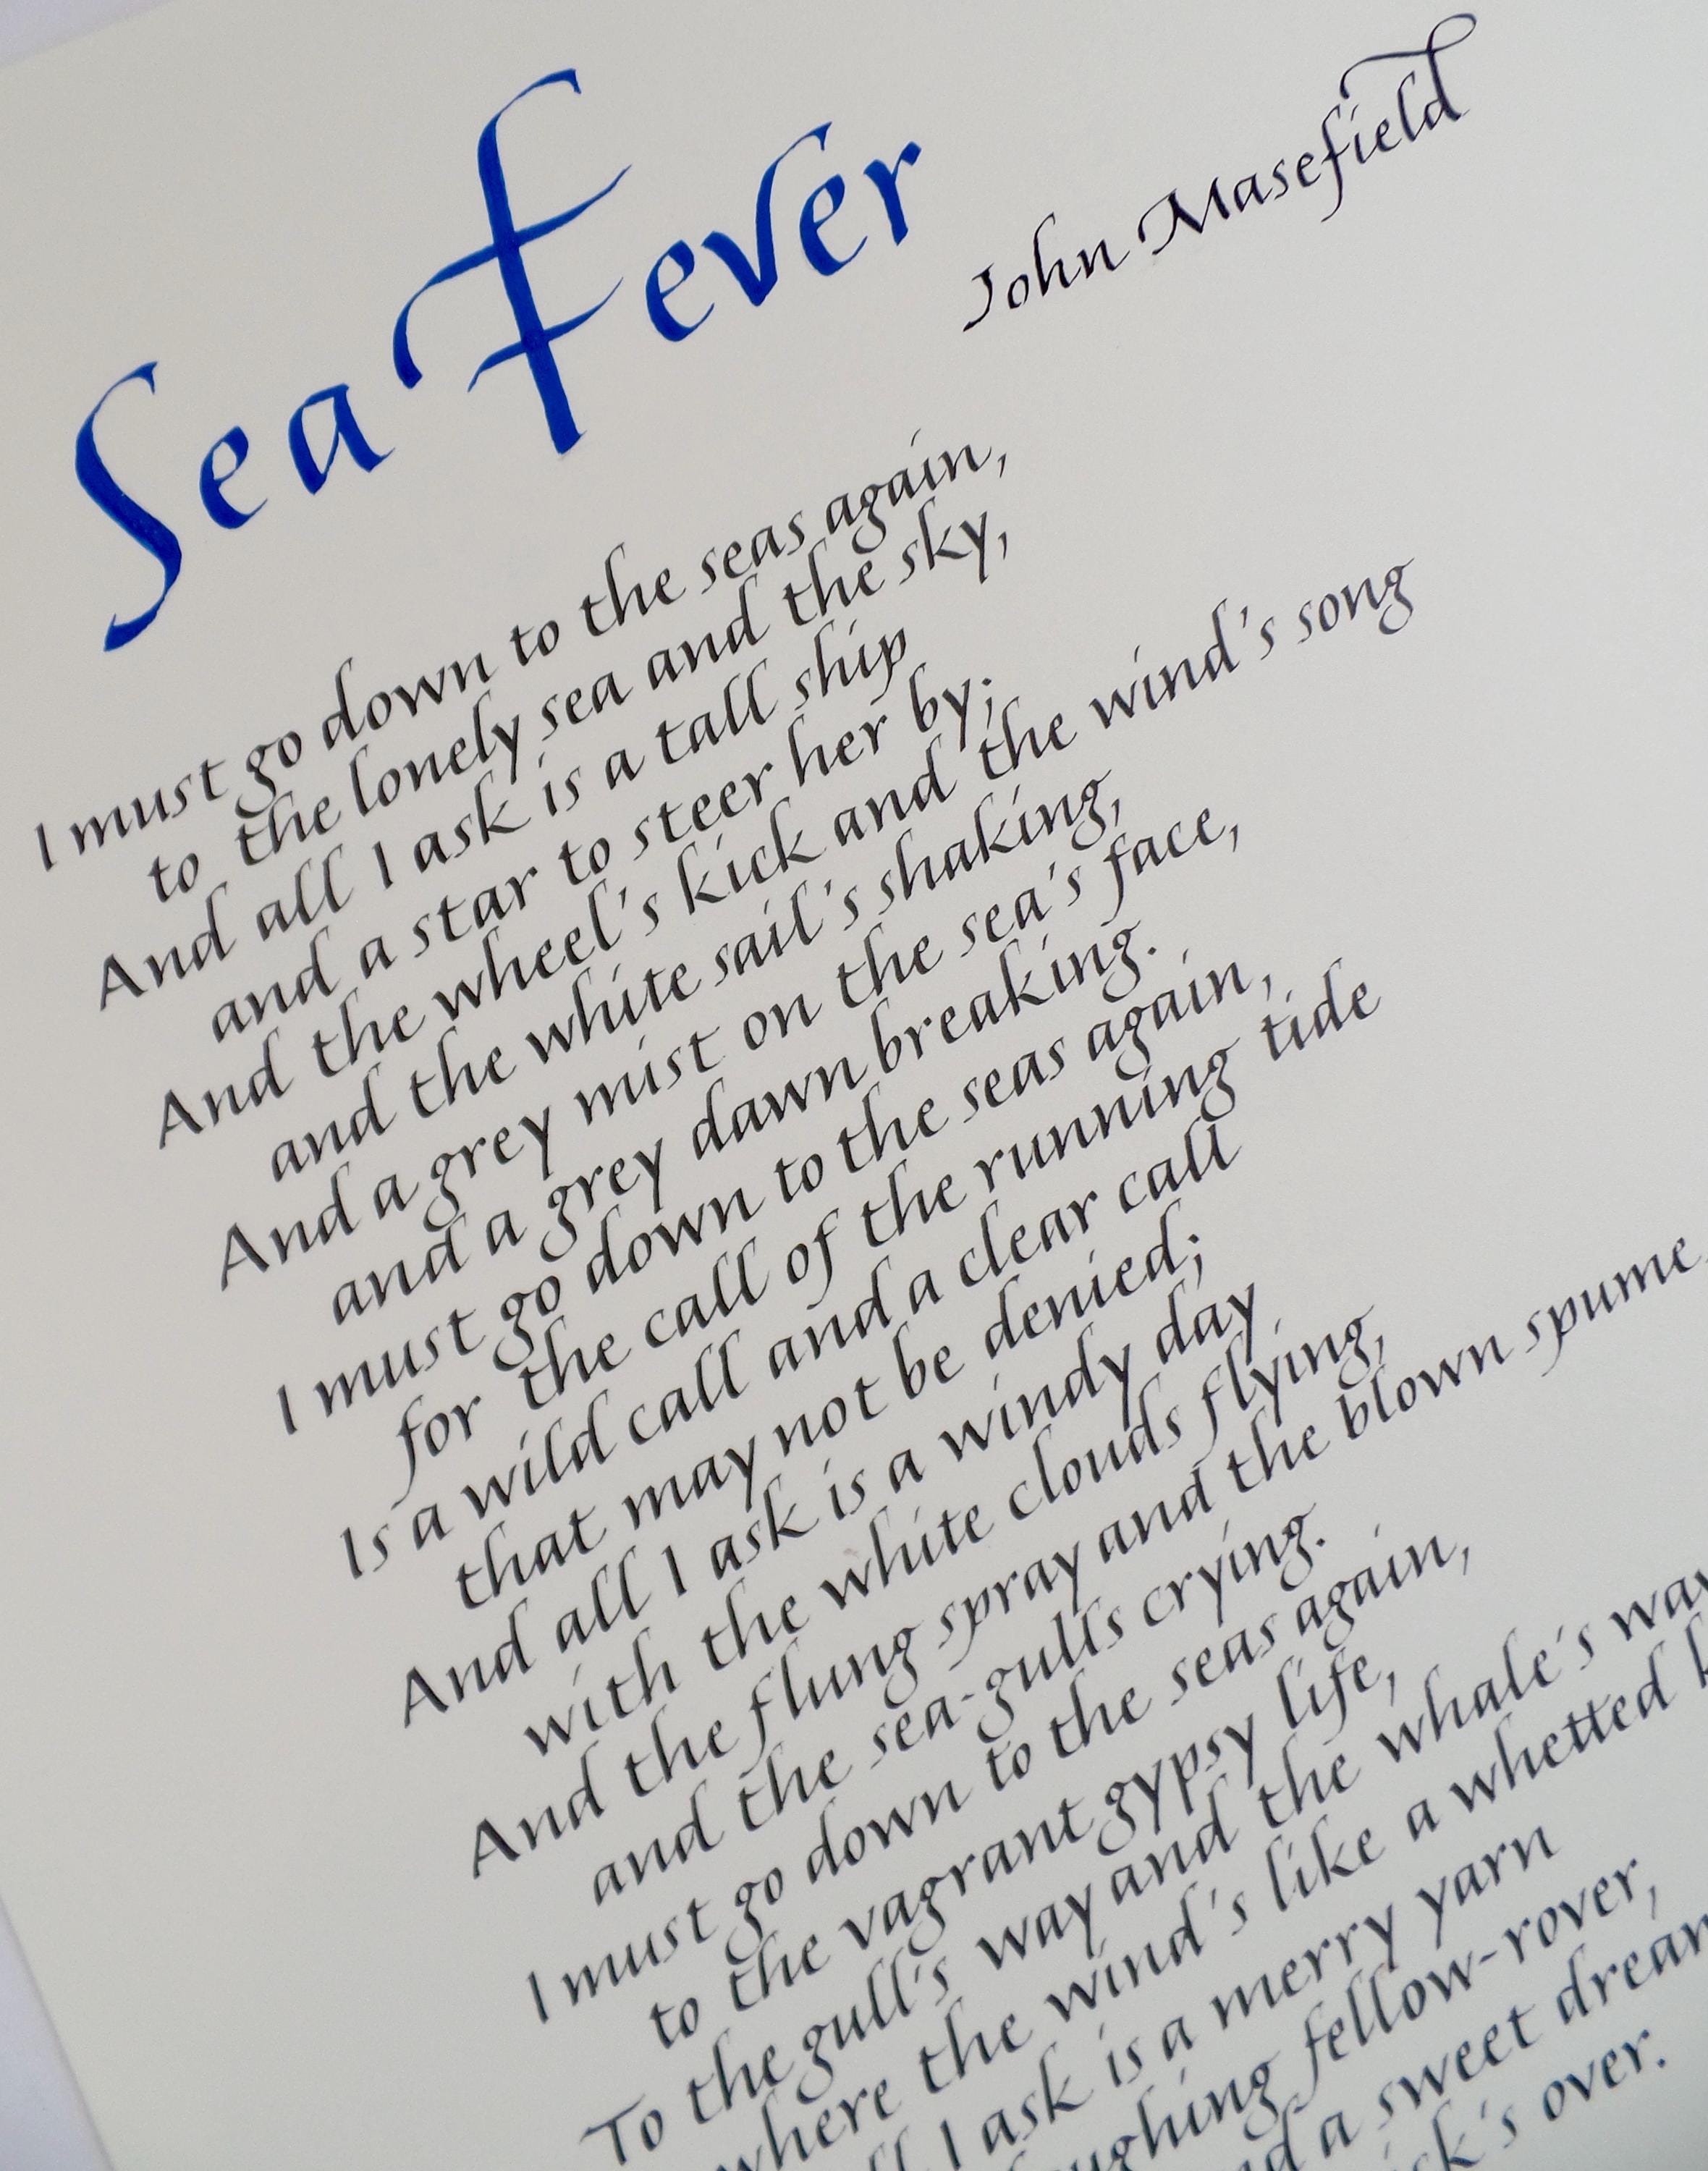 Sea Fever
John Masefield
I must go down to the seas again,
to the lonely sea and the sky,
And all I ask is a tall ship
and a star to steer her by;
And the wheel's kick and the wind's song
and the white sail's shaking,
And a grey mist on the sea's face,
and a grey dawn breaking.
I must go down to the seas again,
for the call of the running tide
Is a wild call and a clear call
that may not be denied;
And all I ask is a windy day
with the white clouds flying,
And the flung spray and the blown spume,
and the sea-gulls crying.
I must go down to the seas again,
to the vagrant gypsy life,
To the gull's way and the whale's way
where the wind's like a whetted
I ask is a merry yarn
fellow-rover,
a sweet
over.